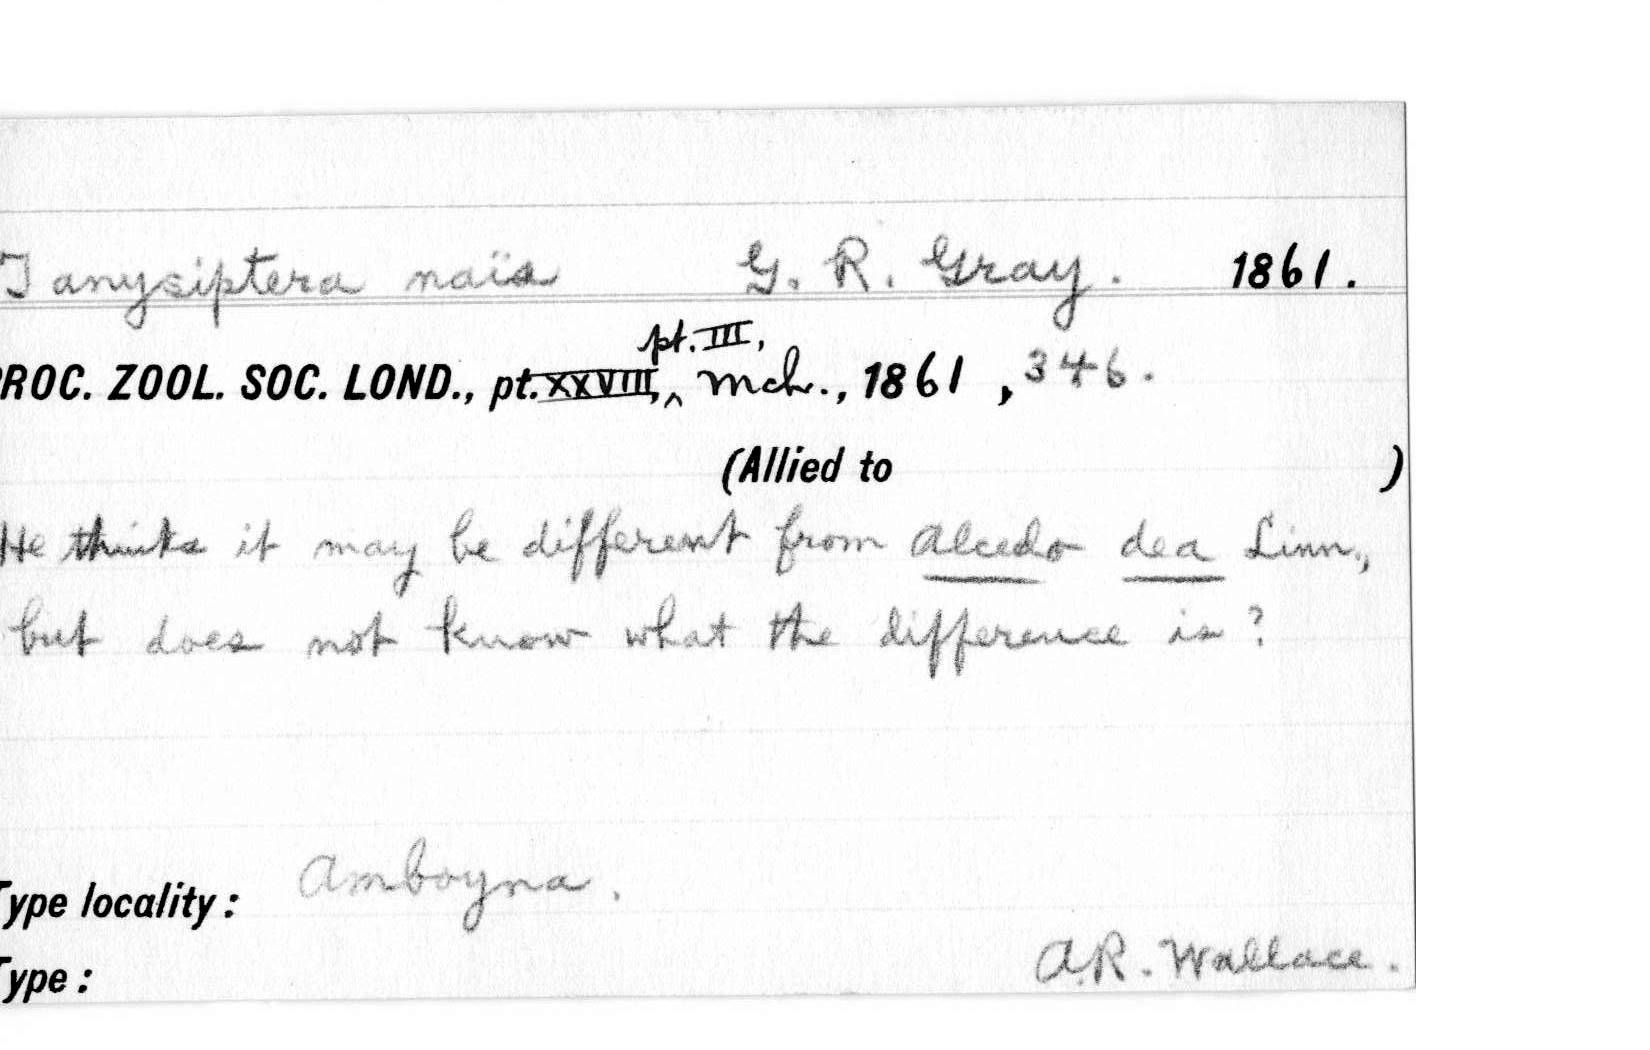 Tanysiptera naïs G. R. Gray. 1861.
pt. III,
PROC. ZOOL. SOC. LOND., pt. XXVIII, ^ Mch., 1861 , 346.
(Allied to )
He thinks it may be different from Alcedo dea Linn.,
but does not know what the difference is?
Type locality : Amboyna.
A.R. Wallace.
Type :